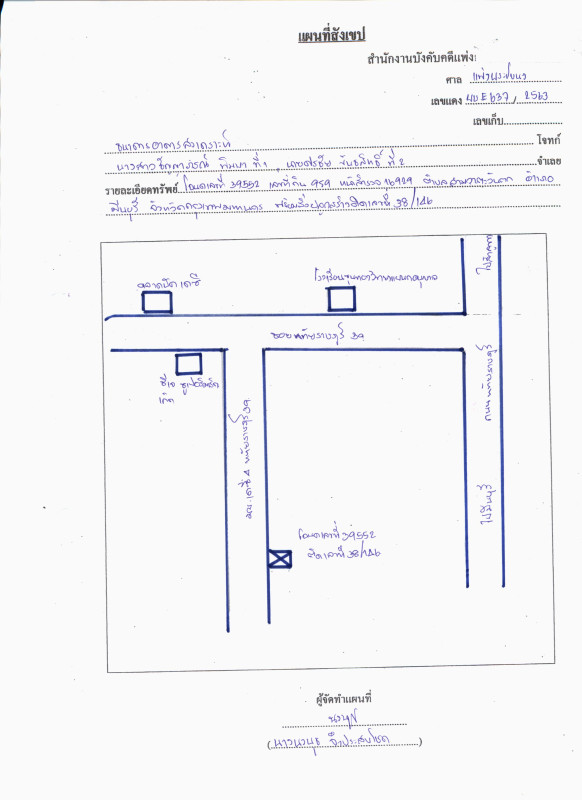 แผนที่สังเขป
สำนักงานบังคับคดีแพ่ง
ศาล แพ่งพระโขนง
เลขแดง ผบE637/2563
เลขเก็บ
ธนาคารอาคารสงเคราะห์ โจทก์
นางสาว ที่ 1 , ที่ 2 จำเลย
รายละเอียดทรัพย์ โฉนดเลขที่ 39552 เลขที่ดิน 959 หน้าสำรวจ 16929 ตำบลสามวาตะวันตก อำเภอ
มีนบุรี จังหวัดกรุงเทพมหานคร พร้อมสิ่งปลูกสร้างติดเลขที่ 38/146
ตลาดนัด เคซี
โรงเรียน
ไป
ซอยหทัยราษฎร์ 39
ซีเจ ซูเปอร์มาร์
เก็ต
ถนนหทัยราษฎร์
ซอย เคซี 4 หทัยราษฎร์ 39
ไปมีนบุรี
โฉนดเลขที่ 39552
ติดเลขที่ 38/146
ผู้จัดทำแผนที่
นวนุช
(นางนวนุช)